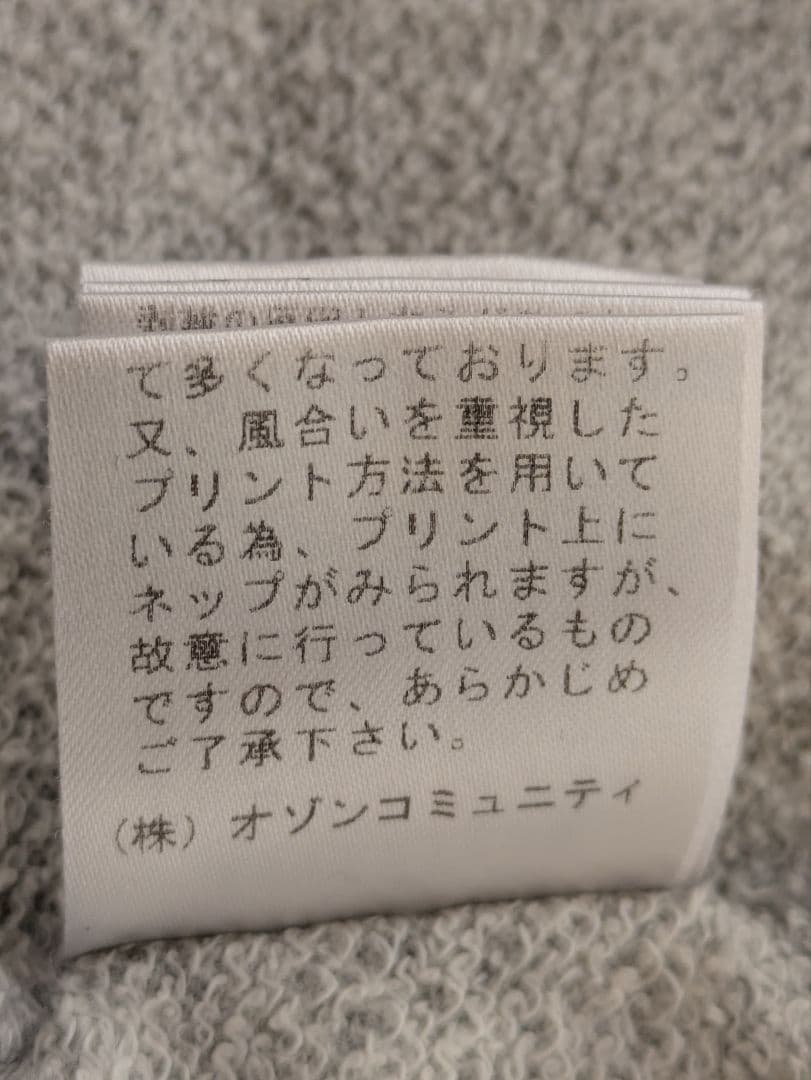 て多くなっております。
又、風合いを重視した
プリント方法を用いて
いる為、プリント上に
ネップがみられますが、
故意に行っているもの
ですので、あらかじめ
ご了承下さい。
(株)オゾンコミュニティ